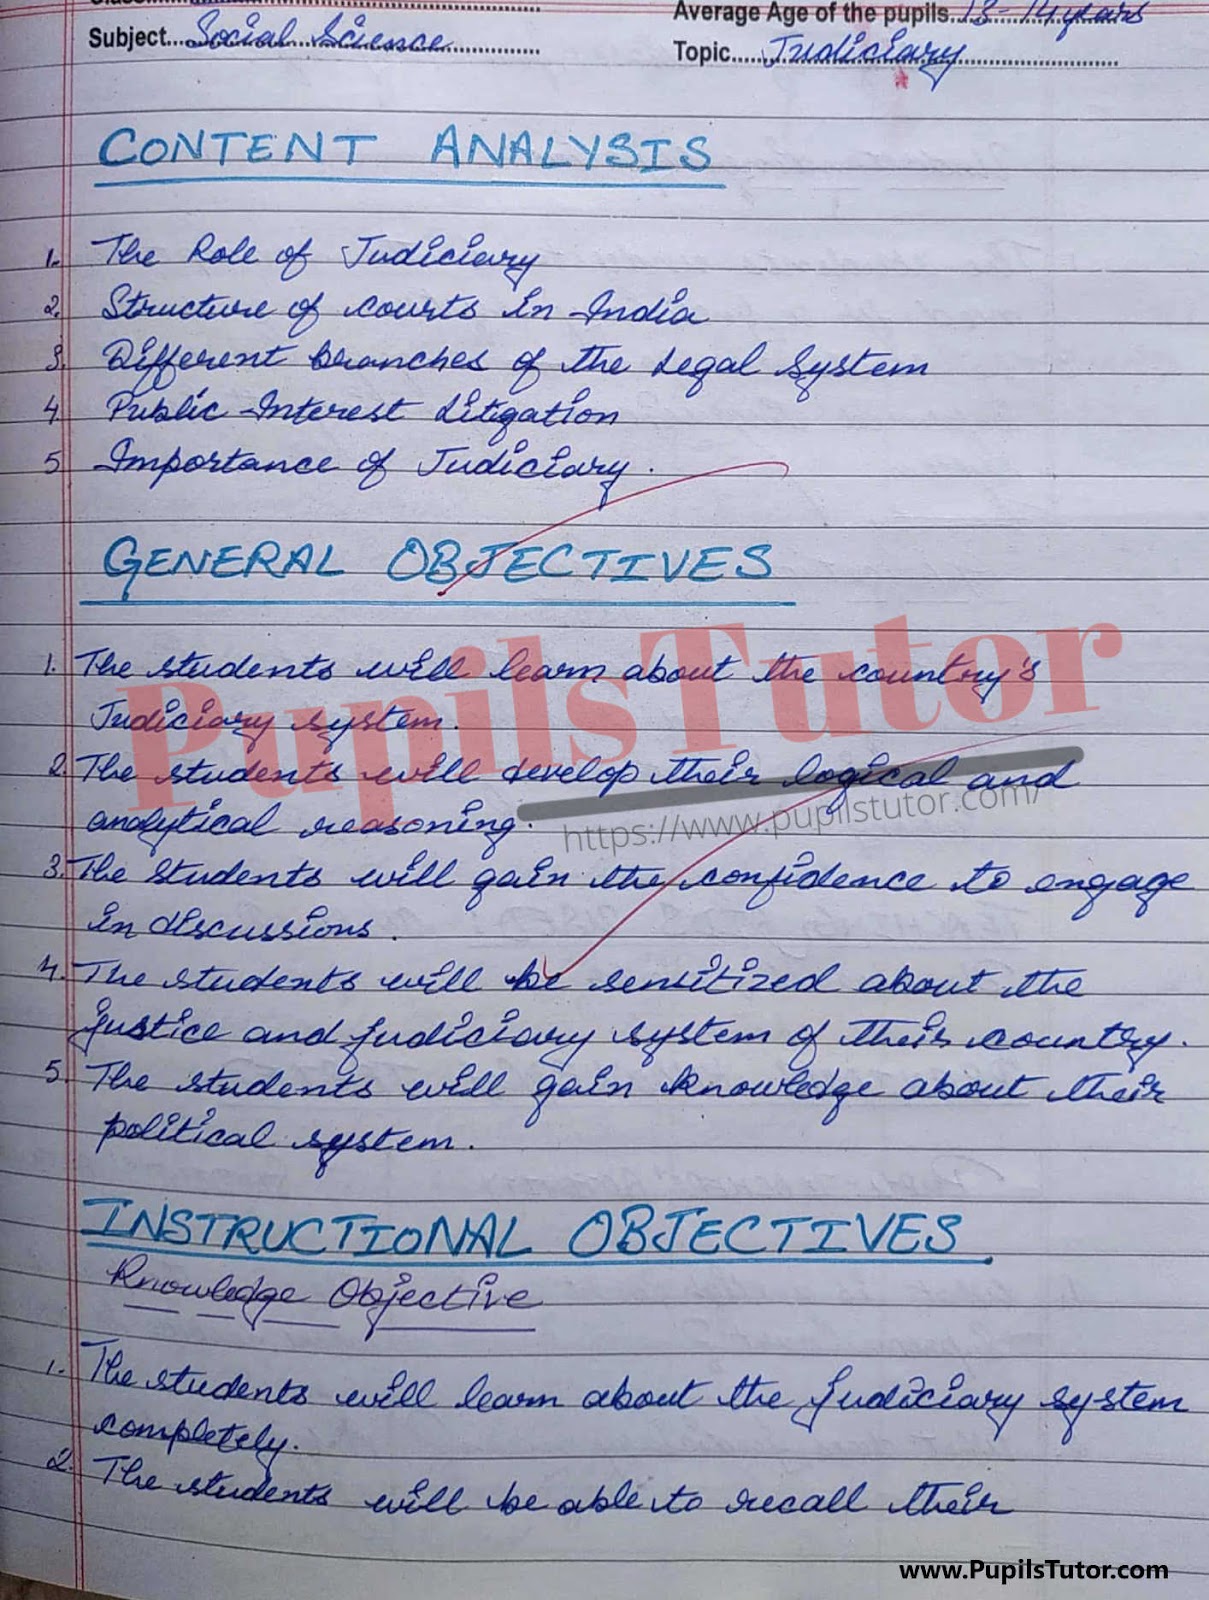 Average Age of the pupils 13-14 years
Subject Social Science
Topic Judiciary
CONTENT ANALYSIS
1. The Role of Judiciary
2. Structure of courts in India
3. Different branches of the Legal System
4. Public Interest Litigation
5. Importance of Judiciary.
GENERAL OBJECTIVES
1. The students will learn about the country's
Judiciary system.
2. The students will develop their logical and
analytical reasoning.
3. The students will gain the confidence to engage
in discussions.
4. The students will be sensitized about the
justice and judiciary system of their country.
5. The students will gain knowledge about their
political system.
PupilsTutor
https://www.pupilstutor.com/
INSTRUCTIONAL OBJECTIVES
Knowledge Objective
1. The students will learn about the judiciary system
completely.
2. The students will be able to recall their
www.PupilsTutor.com